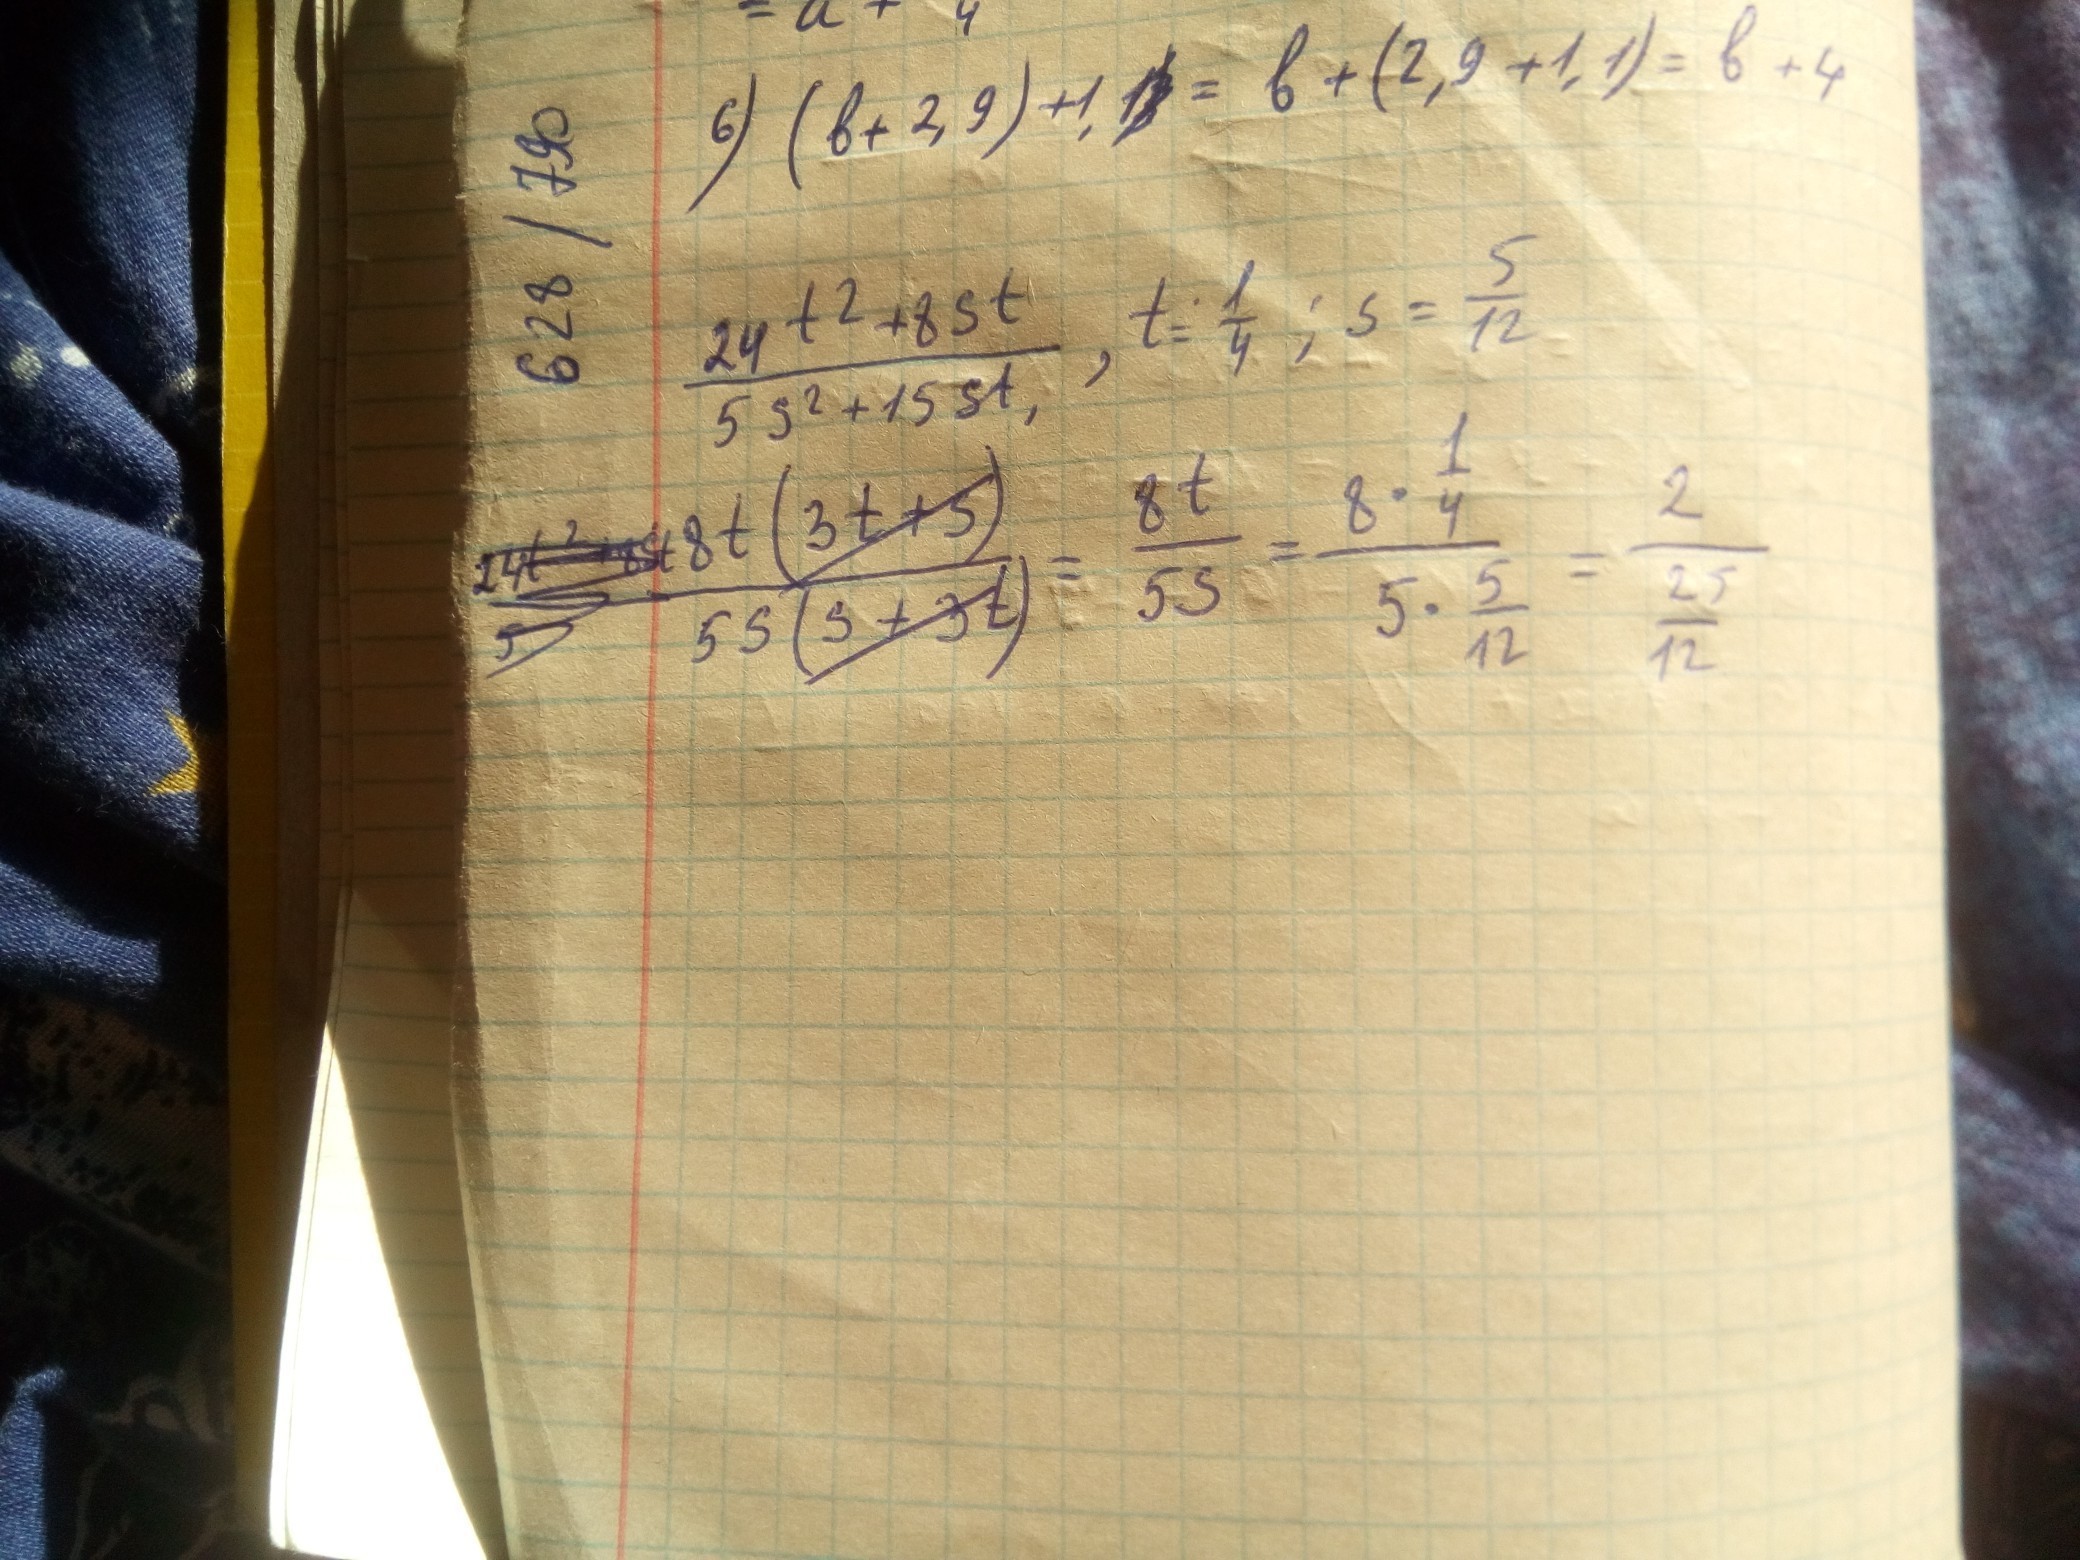 = a + 4
б) (b + 2,9) + 1,1 = b + (2,9 + 1,1) = b + 4
628 / 790
24t²+8st / 5s²+15st, , t = 1/4 ; s = 5/12
8t(3t+s) / 5s(s+3t) = 8t / 5s = 8·1/4 / 5·5/12 = 2 / 25/12